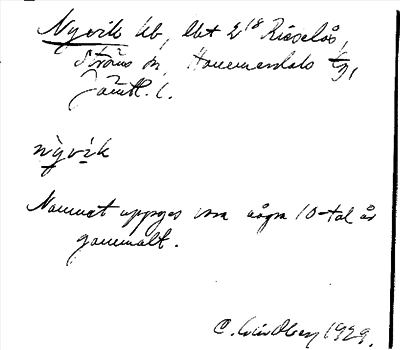 Nyvik lht, lht 2¹⁸ Risselås,
Ströms sn, Hammerdals tg,
Jämtl. l.
nỳvik
Namnet uppges vara några 10-tal år
gammalt.
C. Lindberg 1929.